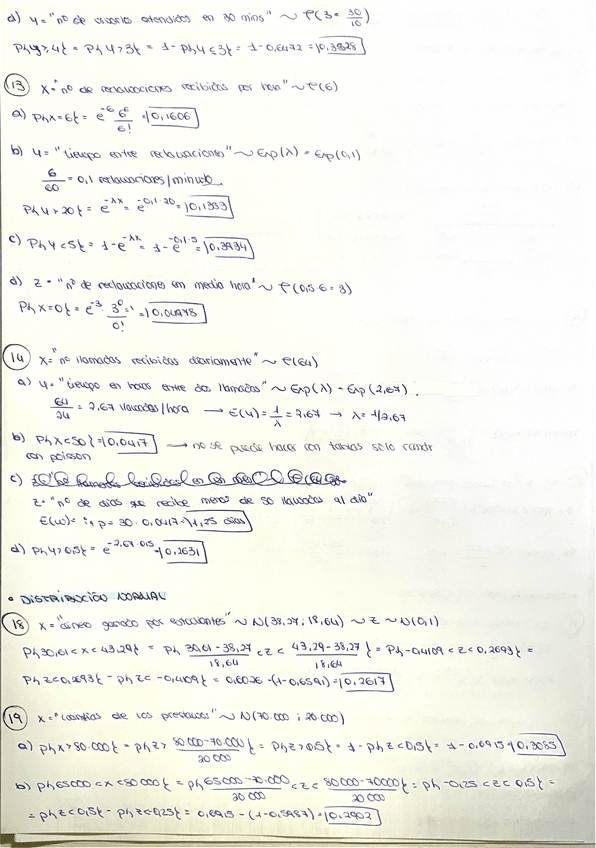 d) Y = "nº de usuarios atendidos en 30 mins" ~ P(3 · 30/10)
P{Y≥4} = P{Y>3} = 1 - P{Y≤3} = 1 - 0,6472 = 0,3528
13 X = "nº de reclamaciones recibidas por hora" ~ P(6)
a) P{X=6} = e^-6 6^6/6! = 0,1606
b) Y = "tiempo entre reclamaciones" ~ Exp(λ) = Exp(0,1)
6/60 = 0,1 reclamaciones/minuto
P{Y>20} = e^-λx = e^-0,1·20 = 0,1353
c) P{Y<5} = 1 - e^-λx = 1 - e^-0,1·5 = 0,3934
d) Z = "nº de reclamaciones en media hora" ~ P(0,5·6 = 3)
P{X=0} = e^-3 · 3^0/0! = 0,0498
14 X = "nº llamadas recibidas diariamente" ~ P(64)
a) Y = "tiempo en horas entre dos llamadas" ~ Exp(λ) = Exp(2,67).
64/24 = 2,67 llamadas/hora → E(Y) = 1/λ = 2,67 → λ = 1/2,67
b) P{X<50} = 0,0417 → no se puede hacer con tablas solo
con poisson
c)
Z = "nº de dias que recibe menos de 50 llamadas al dia"
E(w) = n · p = 30 · 0,0417 = 1,25 dias
d) P{Y>0,5} = e^-2,67·0,5 = 0,2631
• DISTRIBUCIÓN NORMAL
18 X = "dinero ganado por estudiantes" ~ N(38,27; 18,64) ~ Z ~ N(0,1)
P{30,61 < X < 43,29} = P{30,61-38,27/18,64 < Z < 43,29-38,27/18,64} = P{-0,4109 < Z < 0,2693} =
P{Z<0,2693} - P{Z< -0,4109} = 0,6026 - (1-0,6591) = 0,2617
19 X = "cuantias de los prestamos" ~ N(70.000; 20.000)
a) P{X > 80.000} = P{Z > 80.000-70.000/20.000} = P{Z>0,5} = 1 - P{Z<0,5} = 1 - 0,6915 = 0,3085
b) P{65000 < X < 80000} = P{65000-70.000/20000 < Z < 80000-70000/20000} = P{-0,25 < Z < 0,5} =
= P{Z<0,5} - P{Z<0,25} = 0,6915 - (1-0,5987) = 0,2902